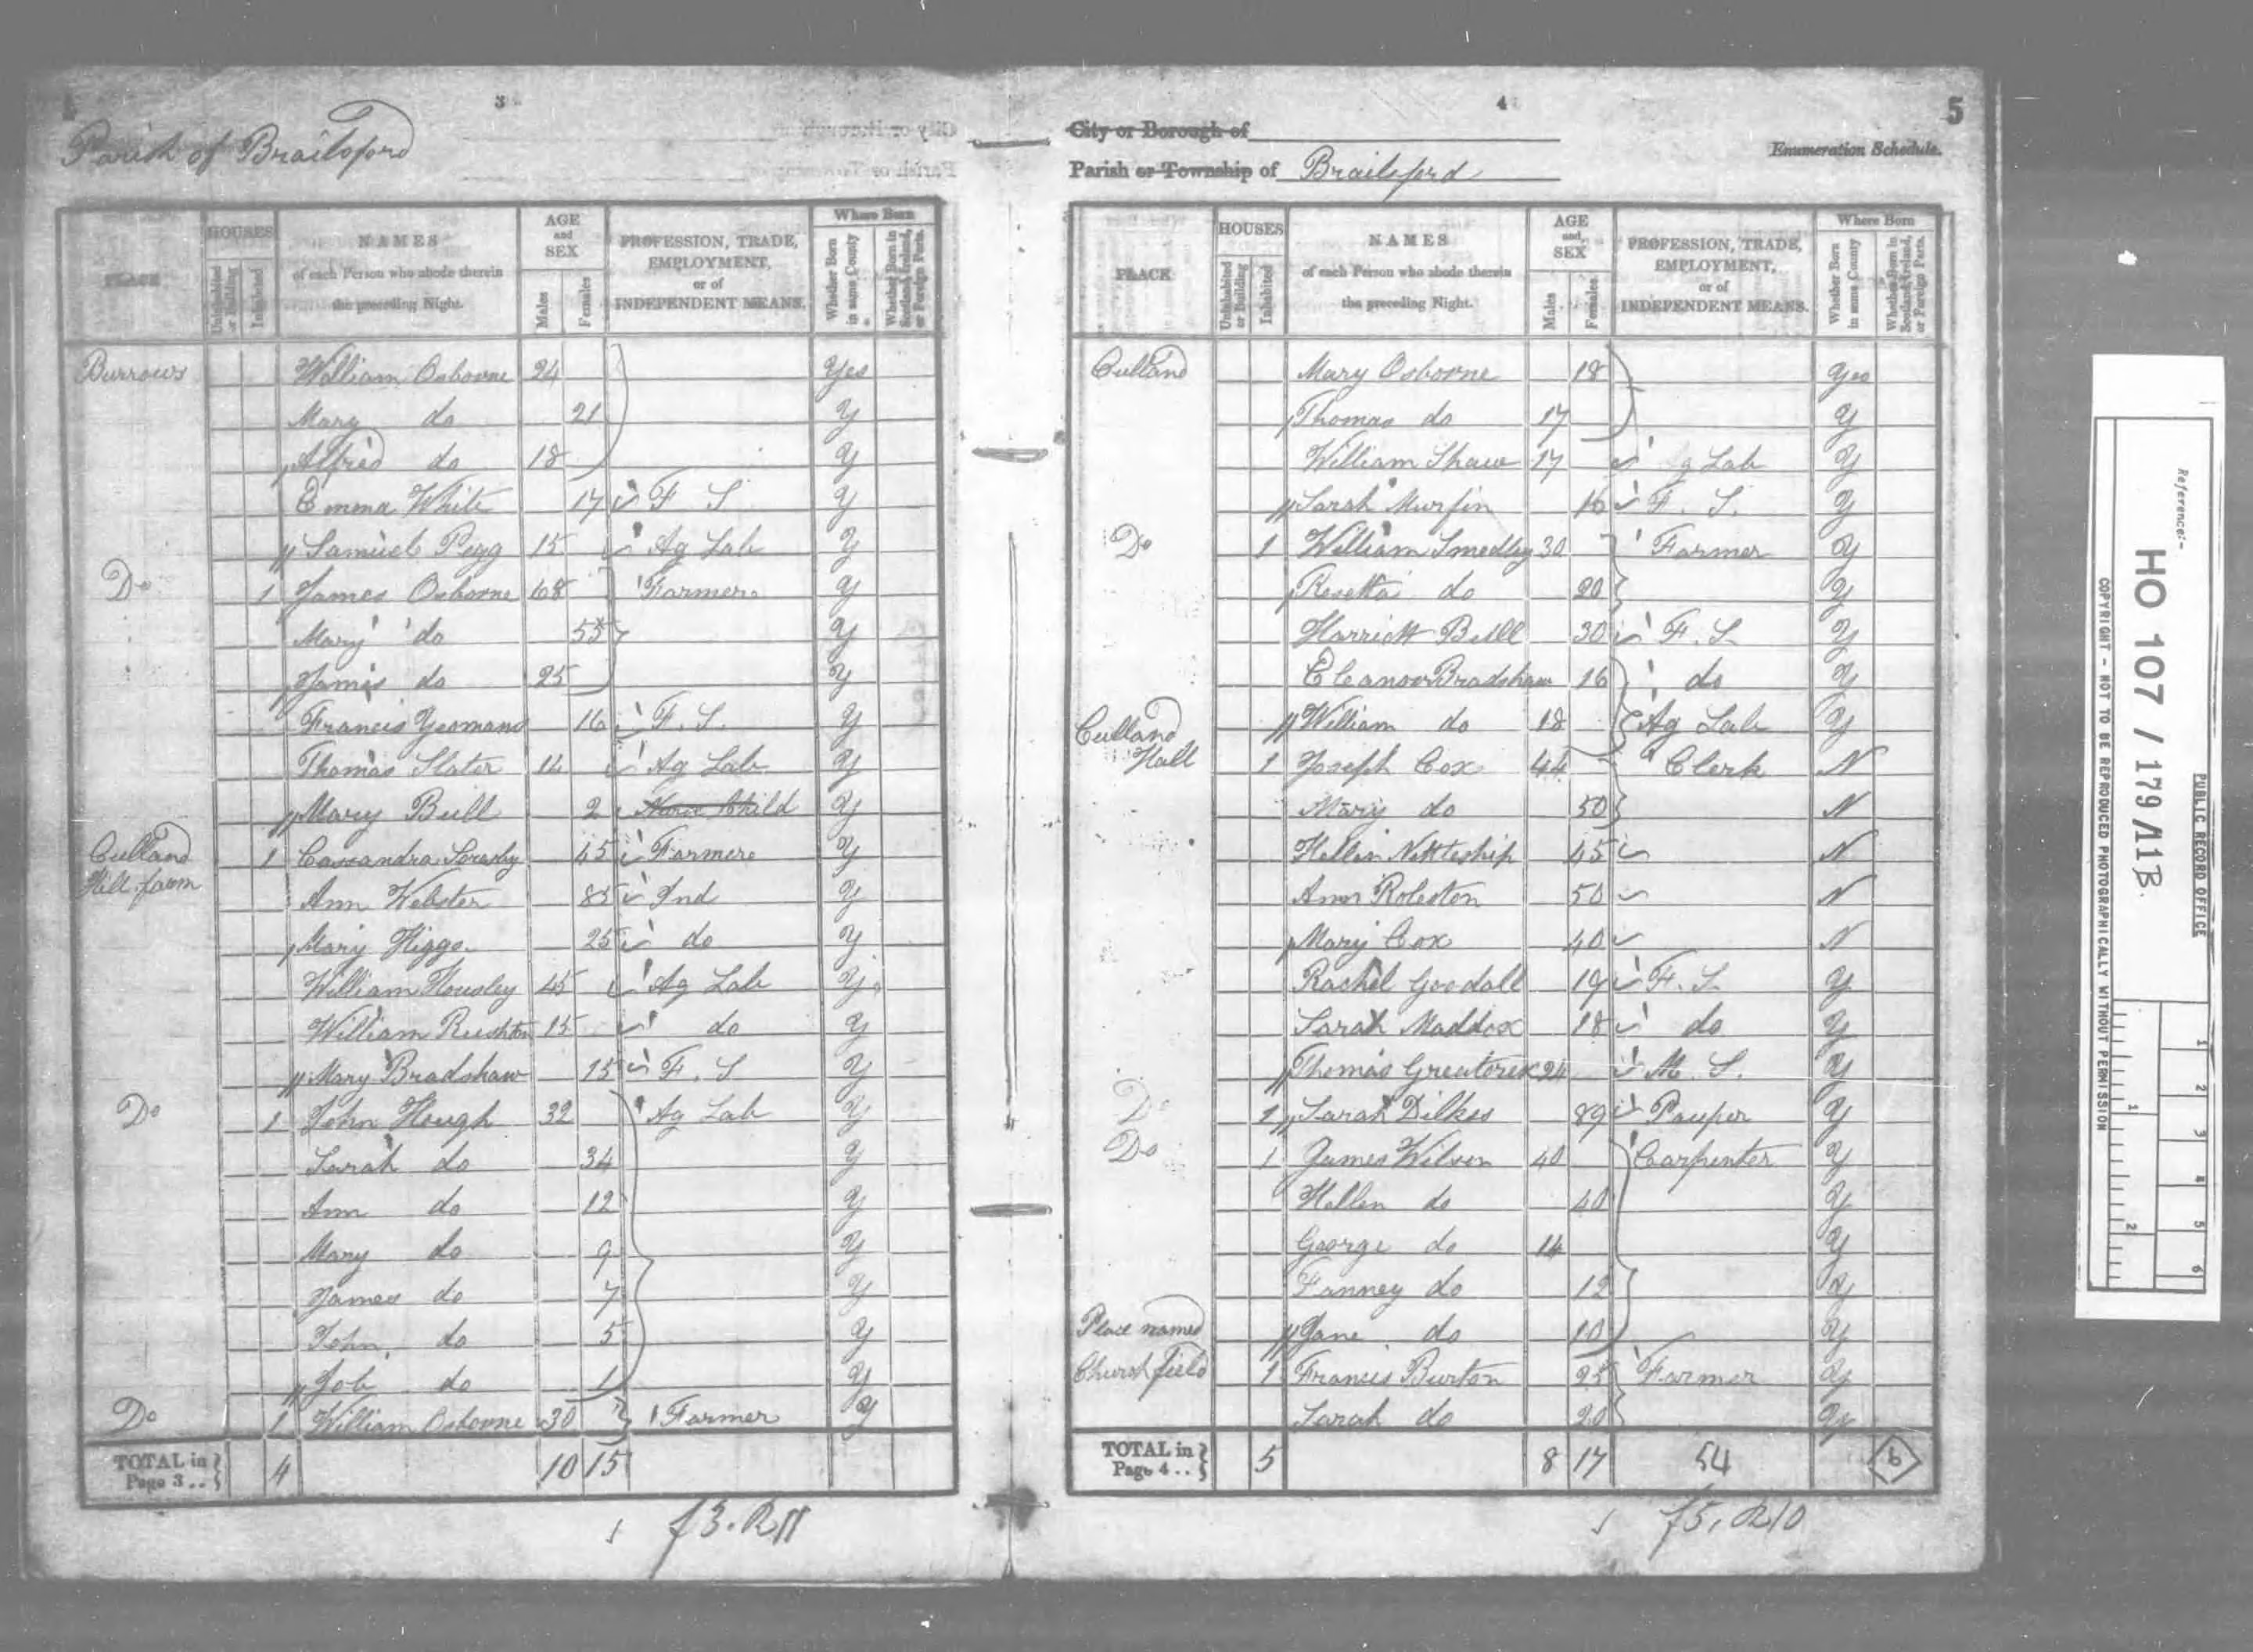 3
Parish of Brailsford
PLACE HOUSES NAMES of each Person who abode therein the preceding Night. AGE and SEX PROFESSION, TRADE, EMPLOYMENT, or of INDEPENDENT MEANS. Where Born
Uninhabited or Building Inhabited Males Females Whether Born in same County Whether Born in Scotland, Ireland, or Foreign Parts.
Burrows William Osborne 24 Yes
Mary do 21 Y
Alfred do 18 Y
Emma White 17 F S Y
Samuel Pegg 15 Ag Lab Y
Do 1 James Osborne 68 Farmer Y
Mary do 55 Y
James do 25 Y
Francis Yeomans 16 F. S. Y
Thomas Slater 14 Ag Lab Y
Mary Bull 2 Child Y
Culland Hill farm 1 Cassandra 45 Farmer Y
Ann Webster 85 Ind Y
Mary Higgs 25 do Y
William Housley 45 Ag Lab Y
William Rushton 15 do Y
Mary Bradshaw 15 F. S Y
Do 1 John Hough 32 Ag Lab Y
Sarah do 34 Y
Ann do 12 Y
Mary do 9 Y
James do 7 Y
John do 5 Y
Job do 1 Y
Do 1 William Osborne 30 Farmer Y
TOTAL in Page 3 .. 4 10 15
4
5
City or Borough of
Enumeration Schedule.
Parish or Township of Brailsford
PLACE HOUSES NAMES of each Person who abode therein the preceding Night. AGE and SEX PROFESSION, TRADE, EMPLOYMENT, or of INDEPENDENT MEANS. Where Born
Uninhabited or Building Inhabited Males Females Whether Born in same County Whether Born in Scotland, Ireland, or Foreign Parts.
Culland Mary Osborne 18 Yes
Thomas do 17 Y
William Shaw 17 Ag Lab Y
Sarah Murfin 16 F. S. Y
Do 1 William Smedley 30 Farmer Y
Rosetta do 20 Y
Harriott Bull 30 F. S Y
Eleanor Bradshaw 16 do Y
Culland William do 18 Ag Lab Y
Hall 1 Joseph Cox 44 Clerk N
Mary do 50 N
Hellin Nettleship 45 N
Ann Roleston 50 N
Mary Cox 40 N
Rachel Goodall 19 F. S. Y
Sarah Maddox 18 do Y
Thomas Greatorex 24 M. S. Y
Do 1 Sarah Dilkes 89 Pauper Y
Do 1 James Wilson 40 Carpenter Y
Hellen do 40 Y
George do 14 Y
Fanney do 12 Y
Place named Jane do 10 Y
Church field 1 Francis Burton 25 Farmer Y
Sarah do 20 Y
TOTAL in Page 4 .. 5 8 17 54 6
Reference:-
HO 107 / 179/11B
PUBLIC RECORD OFFICE
COPYRIGHT - NOT TO BE REPRODUCED PHOTOGRAPHICALLY WITHOUT PERMISSION
1 2 3 4 5 6
1 2